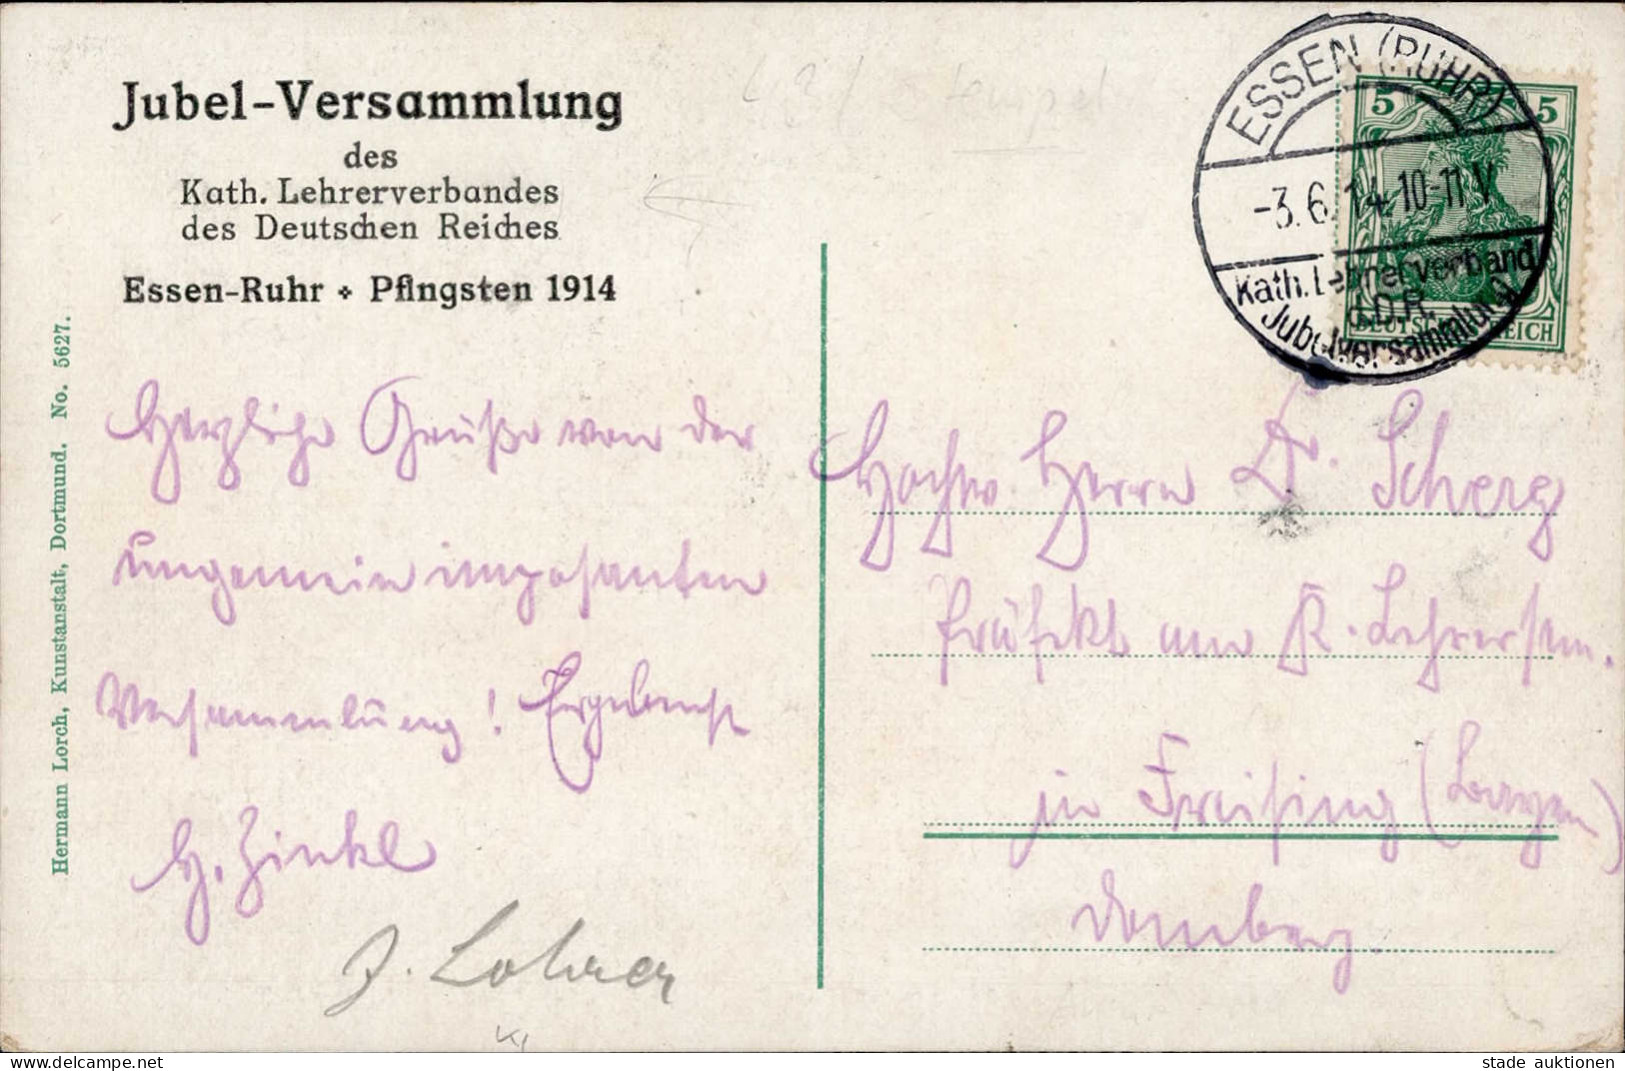 Jubel-Versammlung
des
Kath. Lehrerverbandes
des Deutschen Reiches
Essen-Ruhr + Pfingsten 1914
Hermann Lorch, Kunstanstalt, Dortmund. No. 5627.
Herzliche Grüße von der
ungemein imposanten
Versammlung! Ergebenst
H. Zinkl
J. Lohrer
ESSEN (RUHR)
-3.6.14.10-11 V
Kath. Lehrerverband
d.D.R.
Jubelversammlung
5 5
DEUTSCHES REICH
Hochw. Herrn Dr. Scherg
Präfekt am K. Lehrersem.
in Freising (Bayern)
Domberg.
stempel
www.delcampe.net
stade auktionen